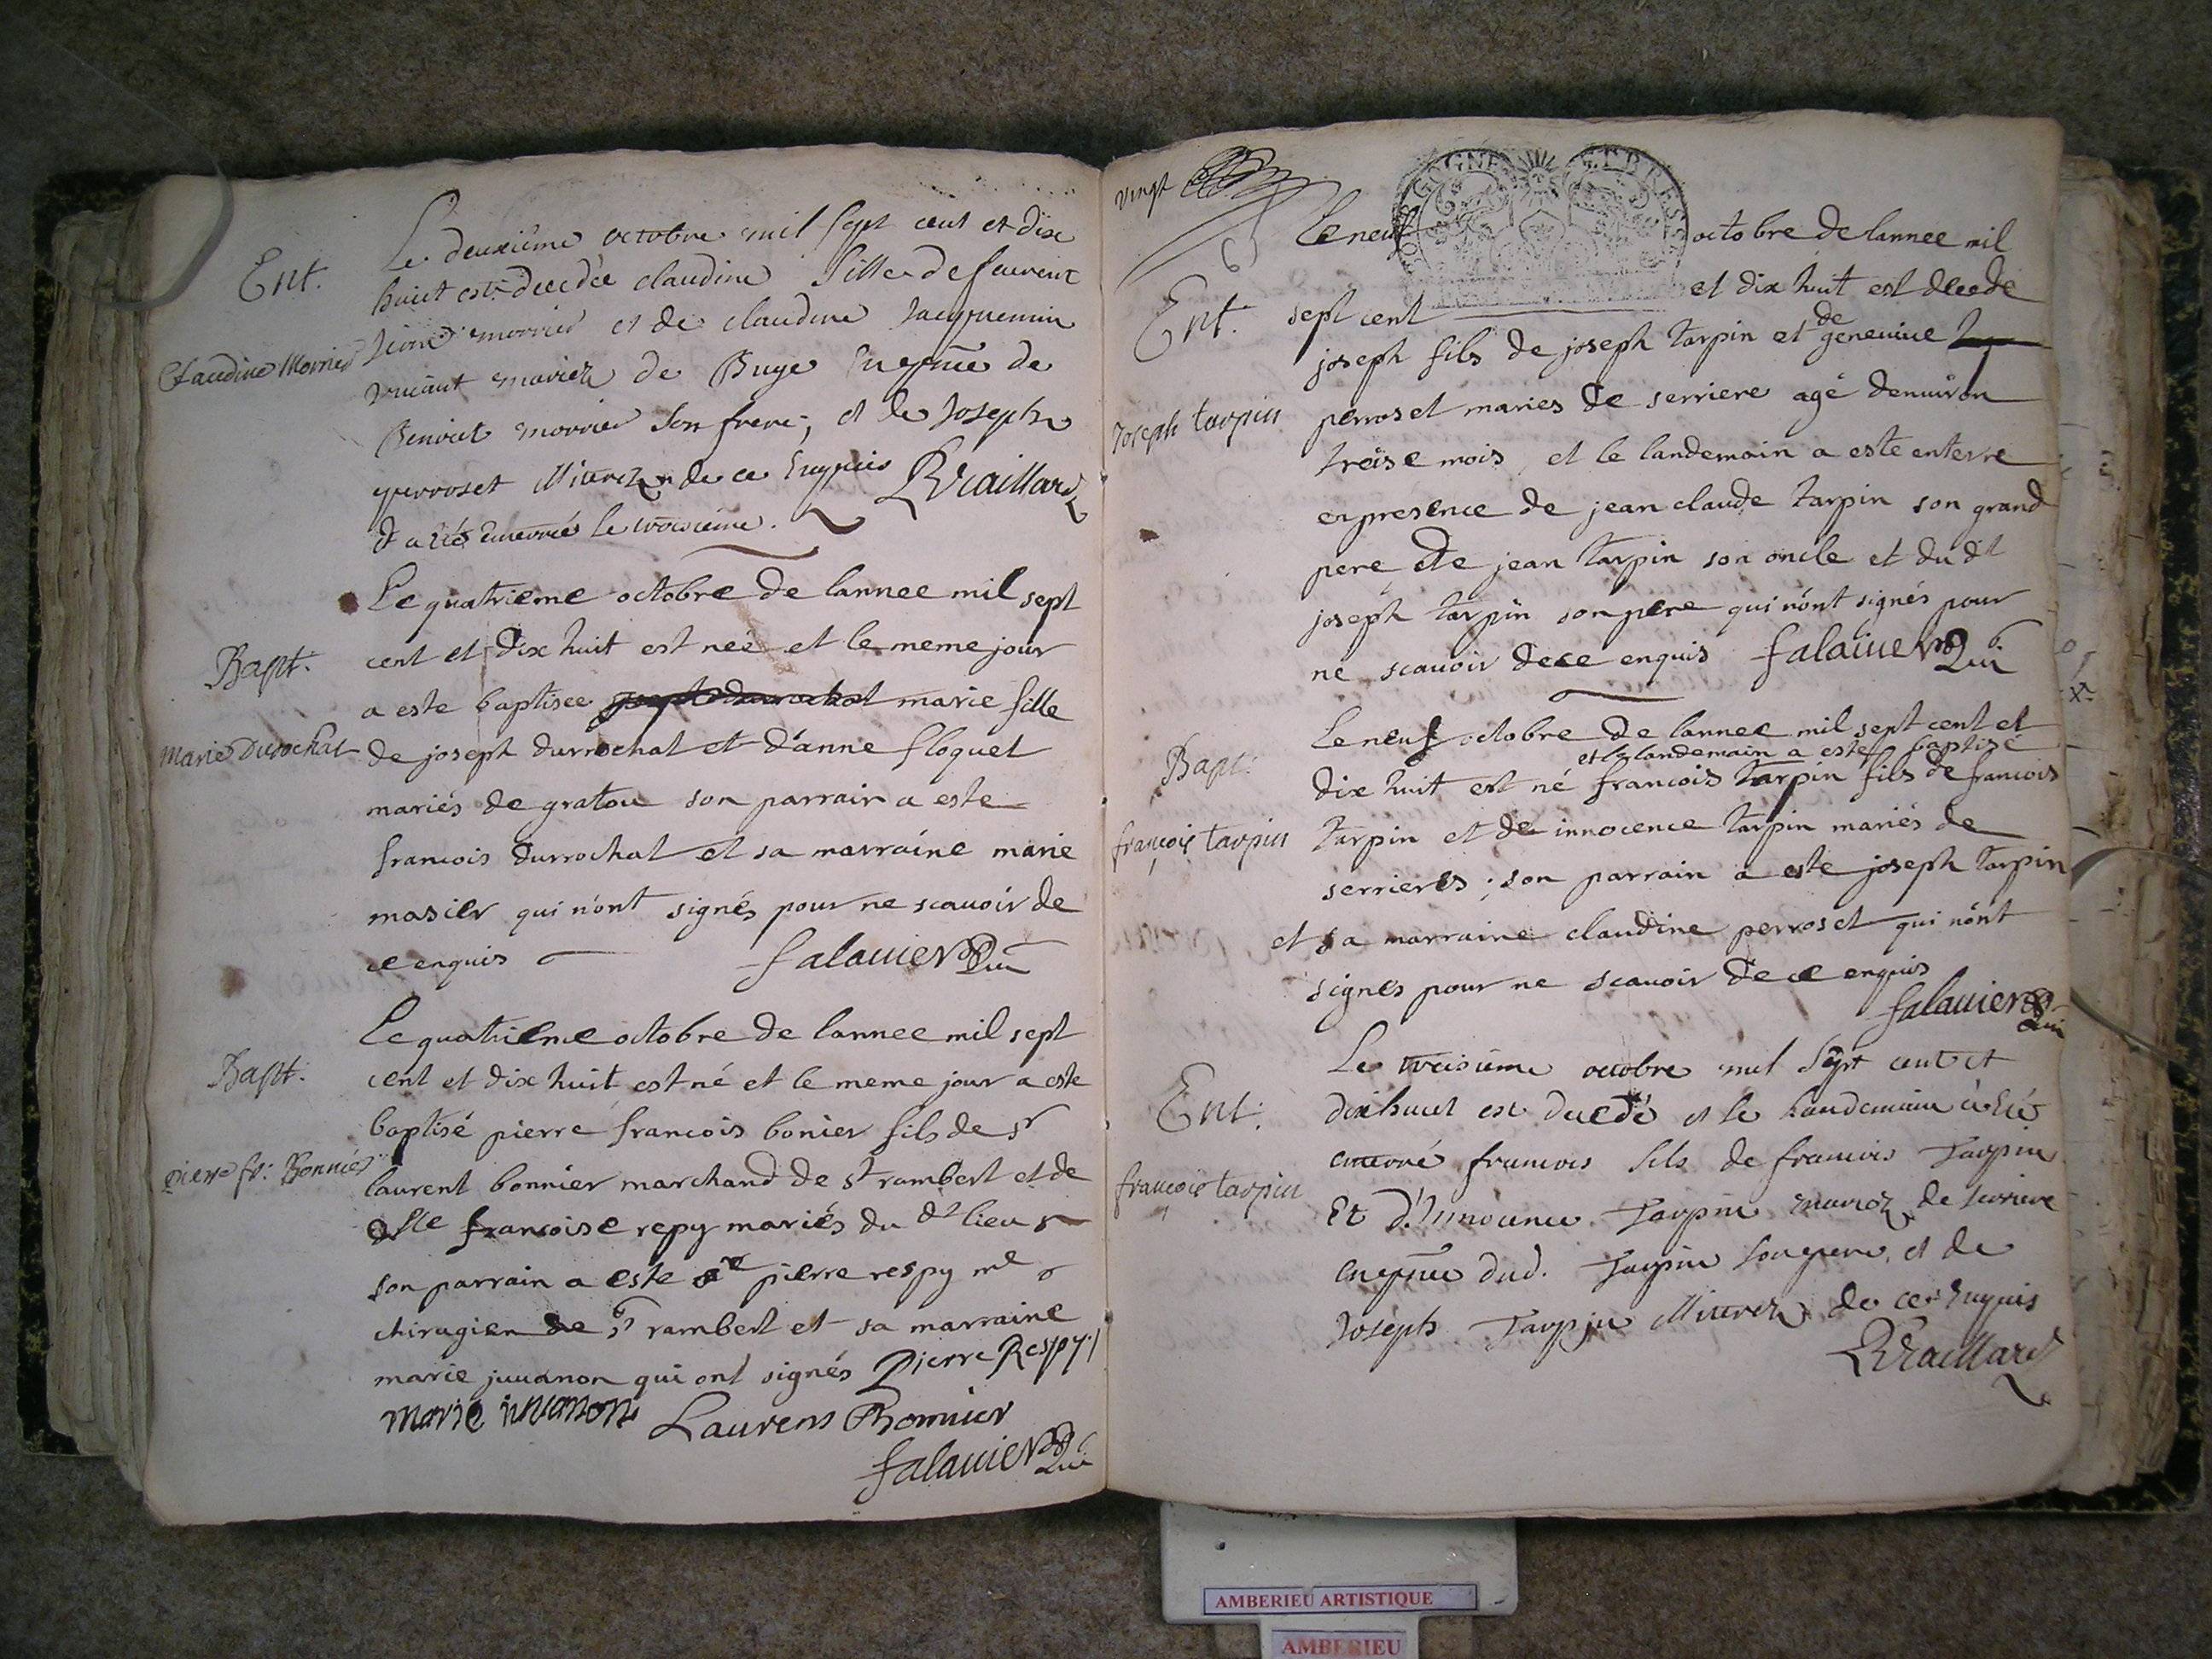 Ent.
Claudine Morrier
Le deuxiême octobre mil sept cent et dix
huict est decedée claudine fille de feu
morrier et de claudine Jacquemin
vivant mariez de Buge En pñce de
Benoict morrier son frere, et de Joseph
perroset illiterez de ce Enquis
Et a été enterrée le troisieme. Bvaillard
Bapt.
Marie Durochat
Le quatrieme octobre de lannee mil sept
cent et dix huit est neé et le meme jour
a este baptisee marie fille
de joseph durrochat et d'anne floquet
mariés de gratou son parrain a este
francois durrochat et sa marraine marie
masier qui n'ont signés pour ne scavoir de
ce enquis falavier
Bapt.
pierre fr: Bonnier
Le quatrieme octobre de lannee mil sept
cent et dix huit est né et le meme jour a este
baptisé pierre francois bonier fils de sr
laurent bonnier marchand de st rambert et de
dlle francoise repy mariés du dt lieu
son parrain a este sr pierre respy me
chirugien de st rambert et sa marraine
marie juvanon qui ont signés Pierre Respy
marie juvanon Laurens Bonnier
falavier
vingt
Ent.
Joseph tarpin
Le neuf octobre de lannee mil
sept cent et dix huit est decede
joseph fils de joseph tarpin et de genevive
perroset maries de serriere agé denuiron
treise mois, et le landemain a este enterre
en presence de jean claude tarpin son grand
pere de jean tarpin son oncle et du dt
joseph tarpin son pere qui n'ont signés pour
ne scavoir de ce enquis falavier
Bapt.
françois tarpin
Le neuf octobre de lannee mil sept cent et
et le landemain a este baptise
dix huit est né francois tarpin fils de francois
tarpin et de innocence tarpin mariés de
serrieres; son parrain a este joseph tarpin
et sa marraine claudine perroset qui n'ont
signés pour ne scavoir de ce enquis
falavier
Ent.
françois tarpin
Le treisieme octobre mil sept cent et
dix huict est decedé et le landemain a été
enterré francois fils de francois Tarpin
Et d'Innocence Tarpin mariez de serriere
en pñce dud. Tarpin son pere, et de
Joseph Tarpin illiterez de ce Enquis
Bvaillard
AMBERIEU ARTISTIQUE
AMBERIEU